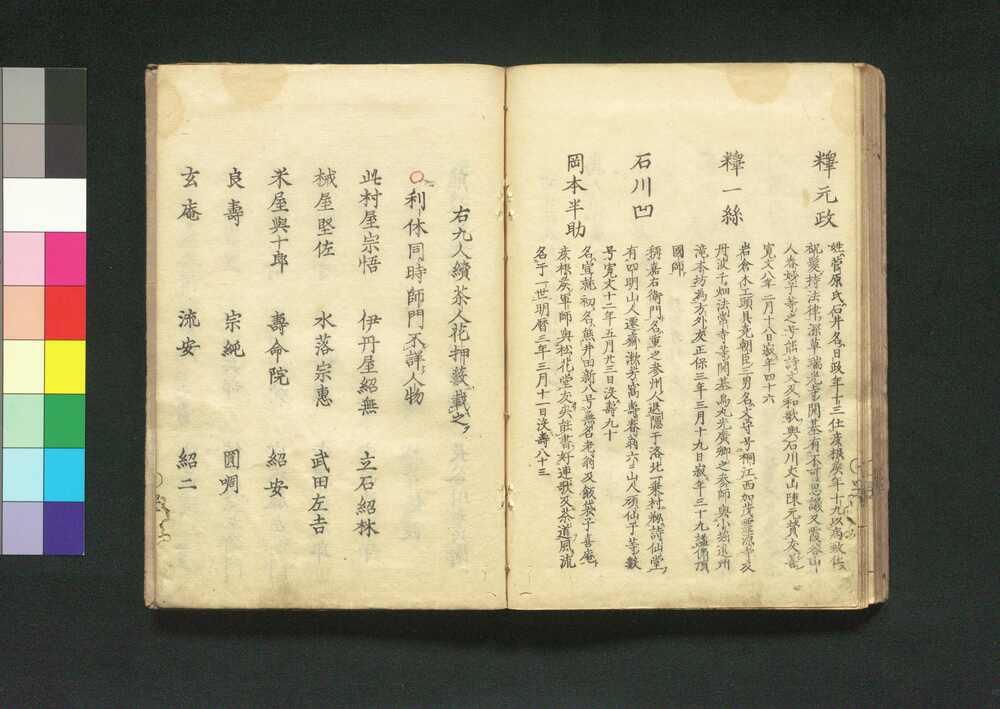 釋元政
姓菅原氏石井名日政年十三仕彦根侯年十九以病致仕
祝髮持法律深草瑞光寺開基有不可思議又霞谷山
人春松子等之号能詩文及和歌與石川丈山陳元贇友善
寛文八年二月十八日寂年四十六
釋一絲
岩倉木工頭具堯朝臣三男名文守号桐江西加茂靈源寺及
丹波千畑法常寺等開基烏丸光廣卿之参師與小堀遠州
瀧本坊為方外友正保三年三月十九日寂年三十九謚佛頂
國師
石川凹
稱嘉右衛門名重之参州人退隱于洛北一乗村稱詩仙堂
有四明山人運齋漱芳窩壽春翁六六山人頑仙子等數
号寛文十二年五月廿三日没壽九十
岡本半助
名宣就初名熊井田新八号無名老翁及飯袋子喜庵
彦根侯軍師與松花堂友矣能書好連歌及茶道風流
名于一世明暦三年三月十一日没壽八十三
右九人續茶人花押藪載之
〇利休同時師門不詳人物
此村屋宗悟 伊丹屋紹無 立石紹林
械屋堅佐 水落宗惠 武田左吉
米屋與十郎 壽命院 紹安
良壽 宗純 圓啁
玄庵 流安 紹二